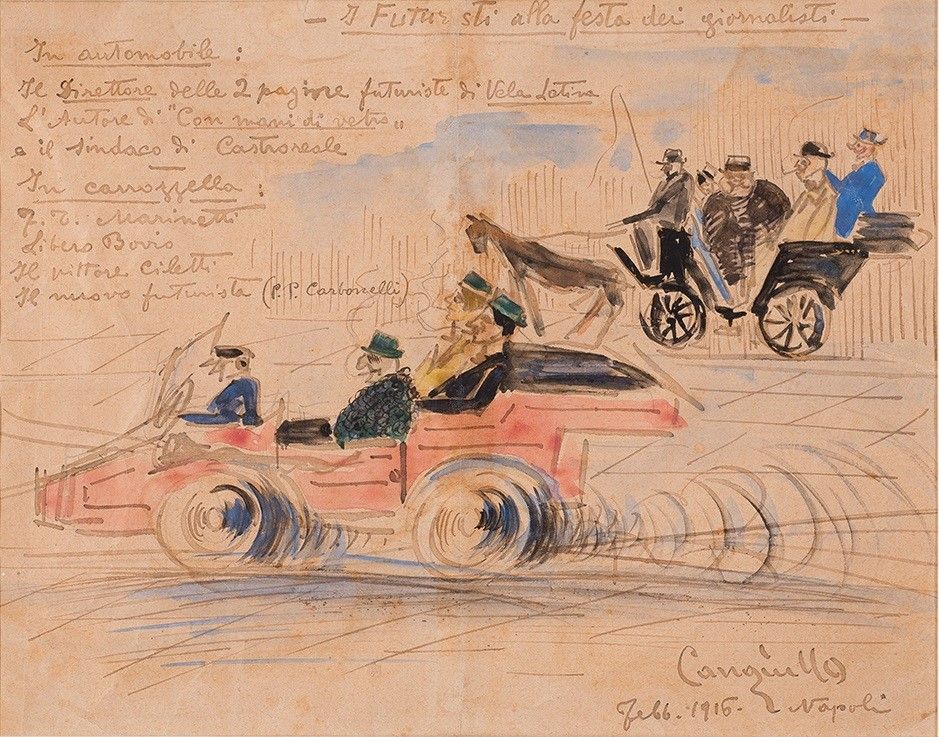 — I Futuristi alla festa dei giornalisti —
In automobile :
Il Direttore delle 2 pagine futuriste di Vela Latina
L'Autore di "Con mani di vetro„
e il sindaco di Castroreale
—
In carrozzella :
F. T. Marinetti
Libero Bovio
Il pittore Ciletti
Il nuovo futurista (P.P. Carbonelli)
Cangiullo
Febb. 1916 - Napoli